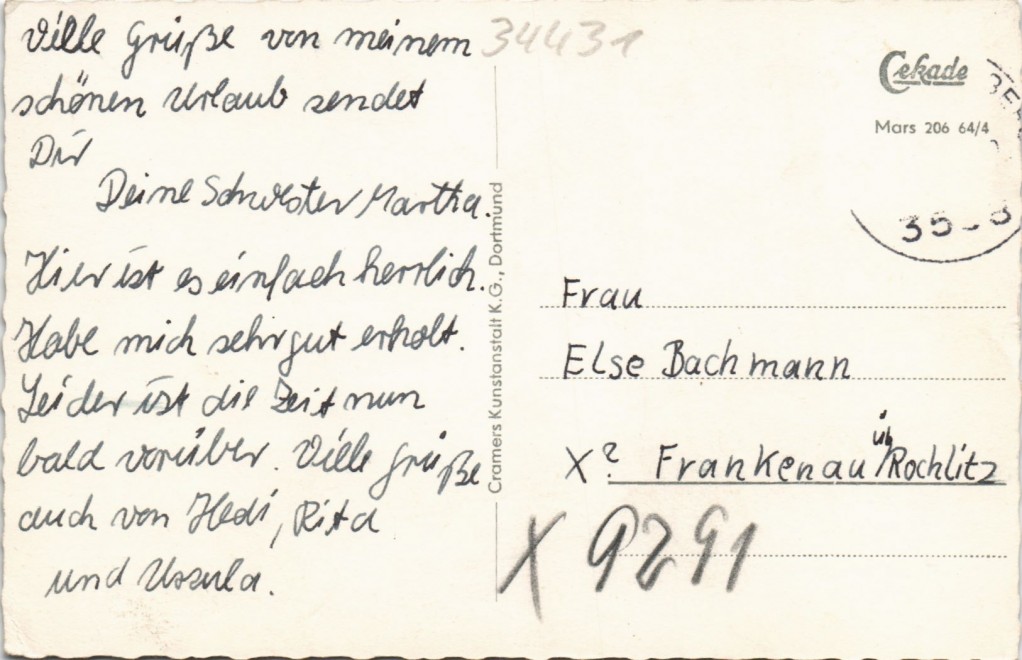 Viele Grüße von meinem
schönen Urlaub sendet
Dir
Deine Schwester Martha.
Hier ist es einfach herrlich.
Habe mich sehr gut erholt.
Leider ist die Zeit nun
bald vorüber. Viele Grüße
auch von Hedi, Rita
und Ursula.
34431
Cramers Kunstanstalt K.G., Dortmund
Cekade
Mars 206 64/4
Frau
Else Bachmann
X? Frankenau üb Rochlitz
X 9291